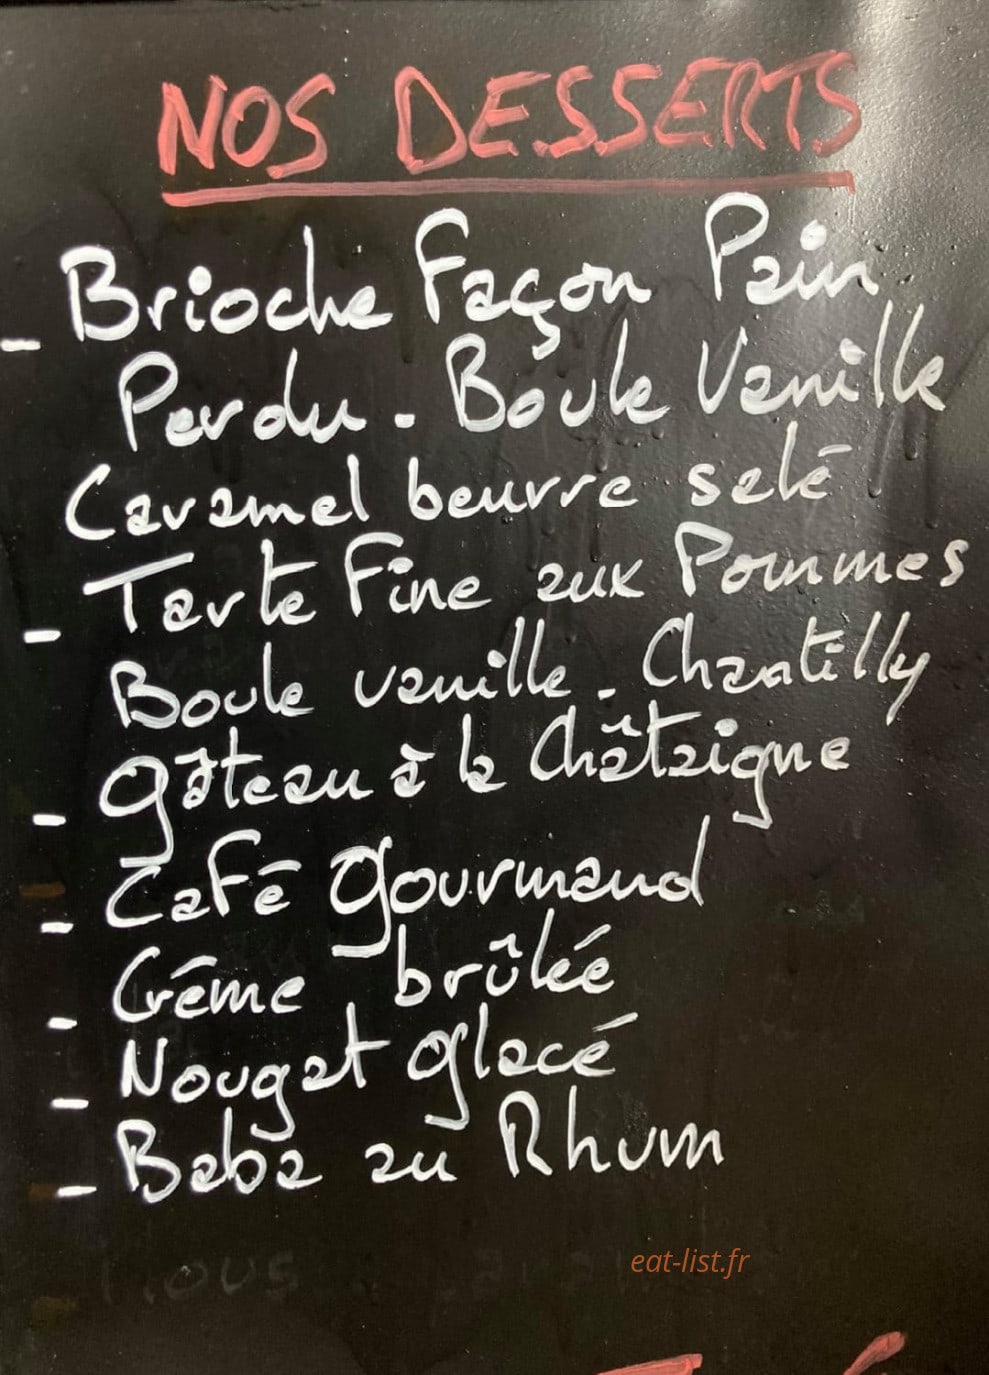 NOS DESSERTS
- Brioche Façon Pain
Perdu. Boule Vanille
Caramel beurre salé
- Tarte Fine aux Pommes
Boule vanille. Chantilly
- Gâteau à la Châtaigne
- Café Gourmand
- Crême brûlée
- Nougat Glacé
- Baba au Rhum
eat-list.fr